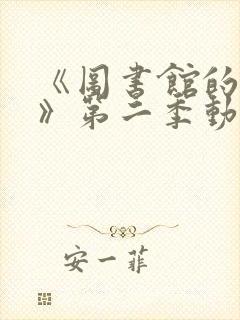 《圖書館的
》第二季動
安一菲